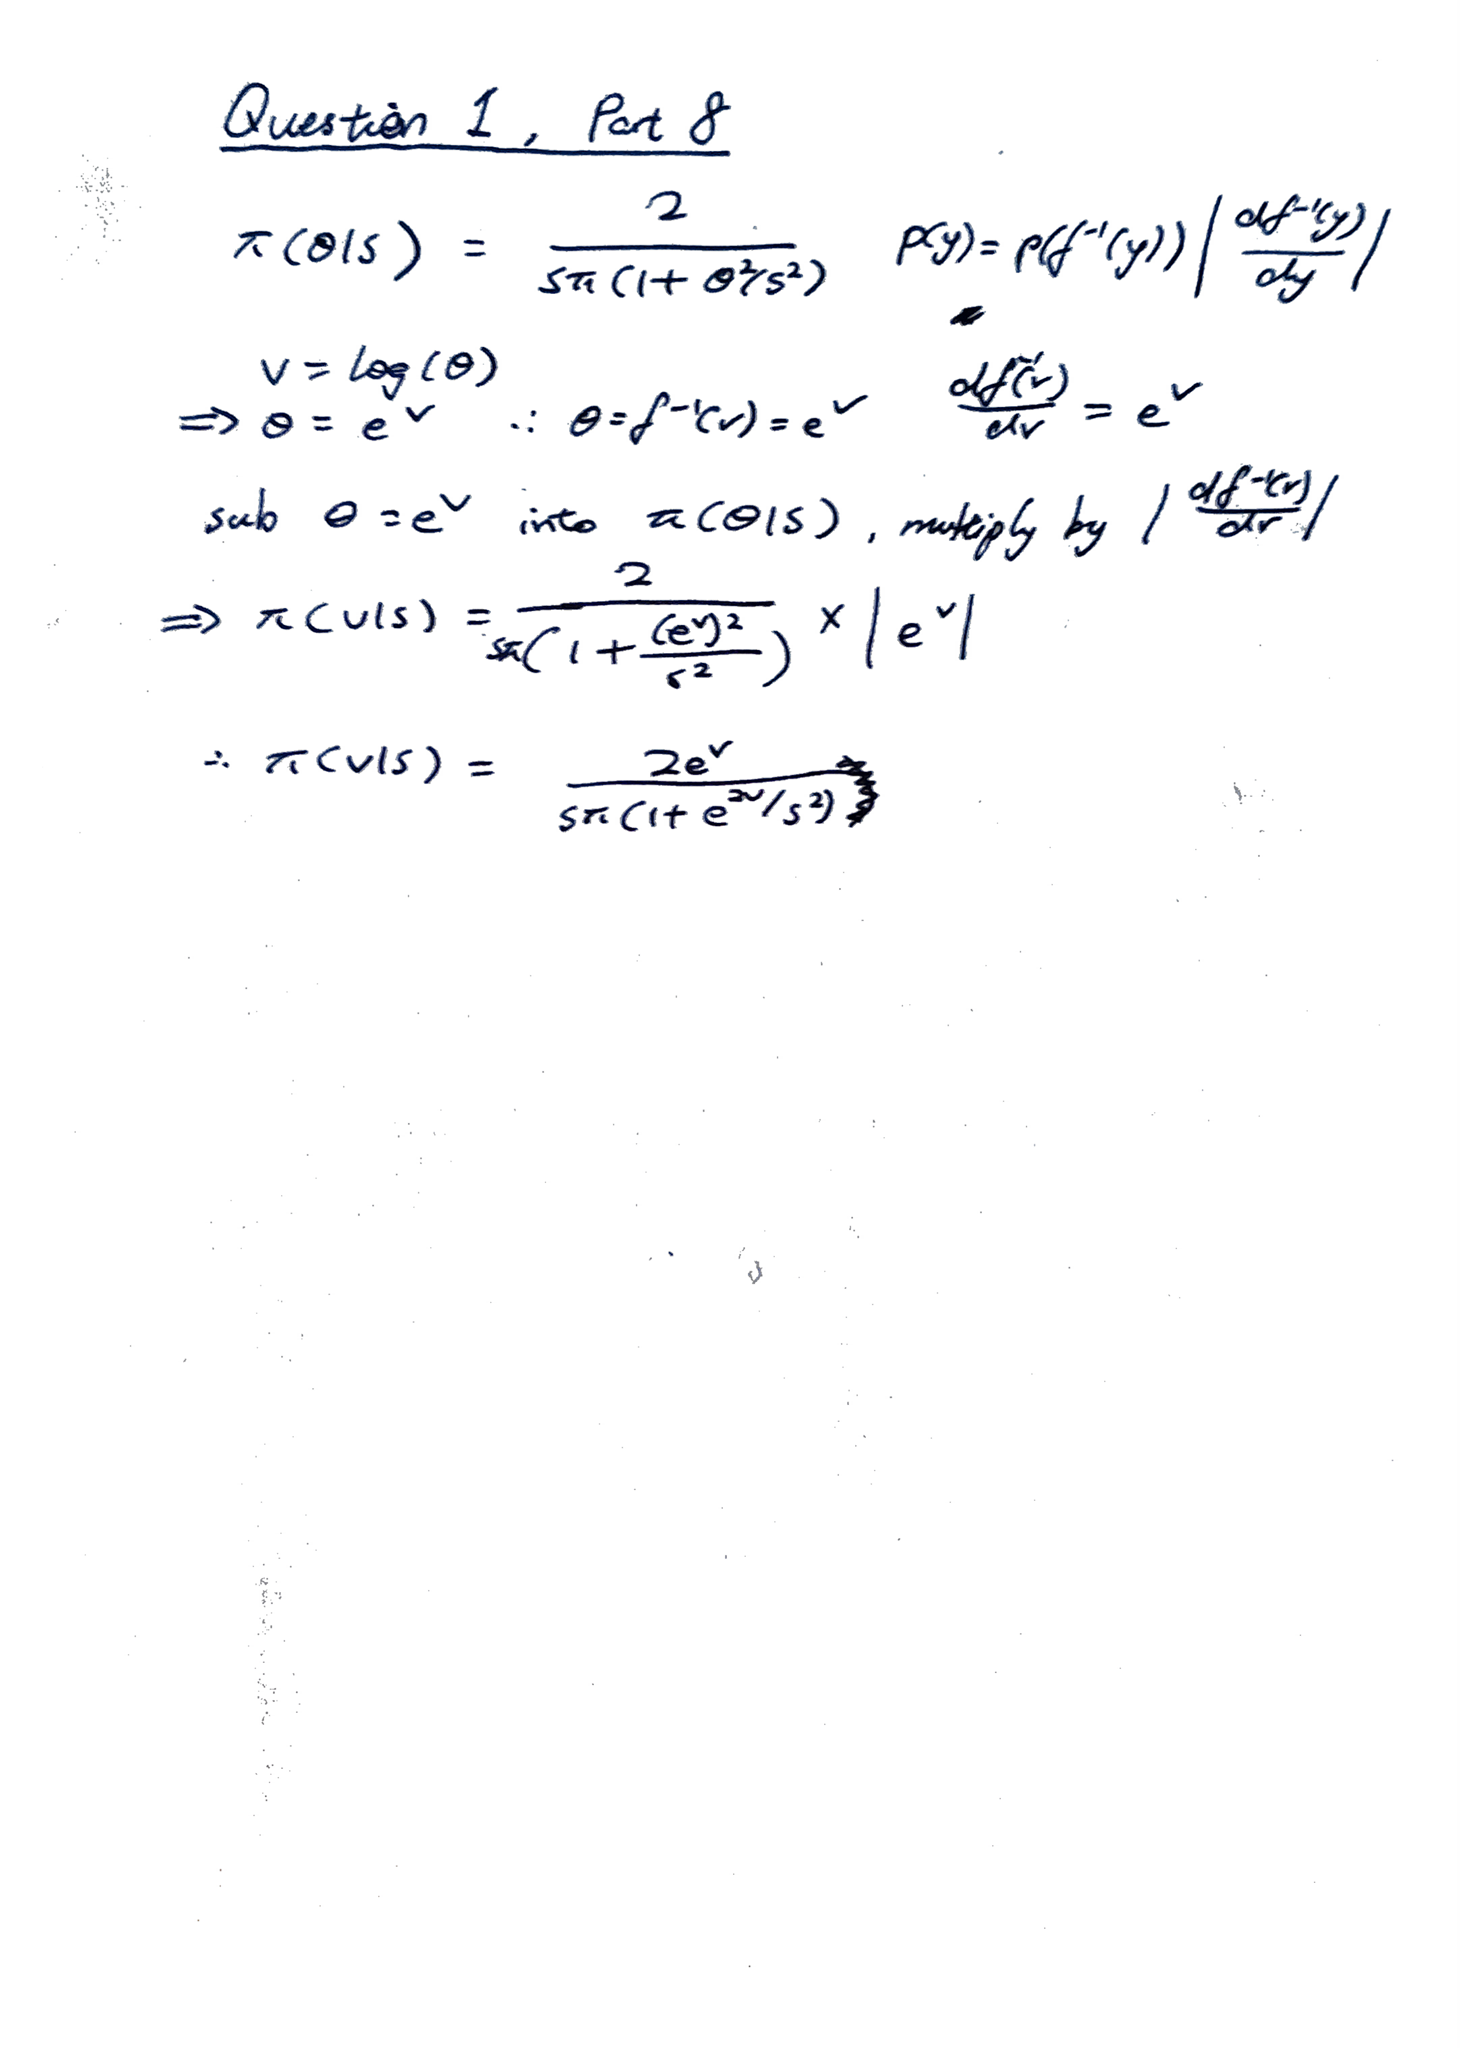 Question 1, Part 8
π(θ|s) = 2 / sπ(1 + θ²/s²)    p(y) = p(f⁻¹(y)) |df⁻¹(y)/dy|
v = log(θ)
⇒ θ = e^v ∴ θ = f⁻¹(v) = e^v    df⁻¹(v)/dv = e^v
sub θ = e^v into π(θ|s), multiply by |df⁻¹(v)/dv|
⇒ π(v|s) = 2 / sπ(1 + (e^v)²/s²) × |e^v|
∴ π(v|s) = 2e^v / sπ(1 + e^2v/s²)